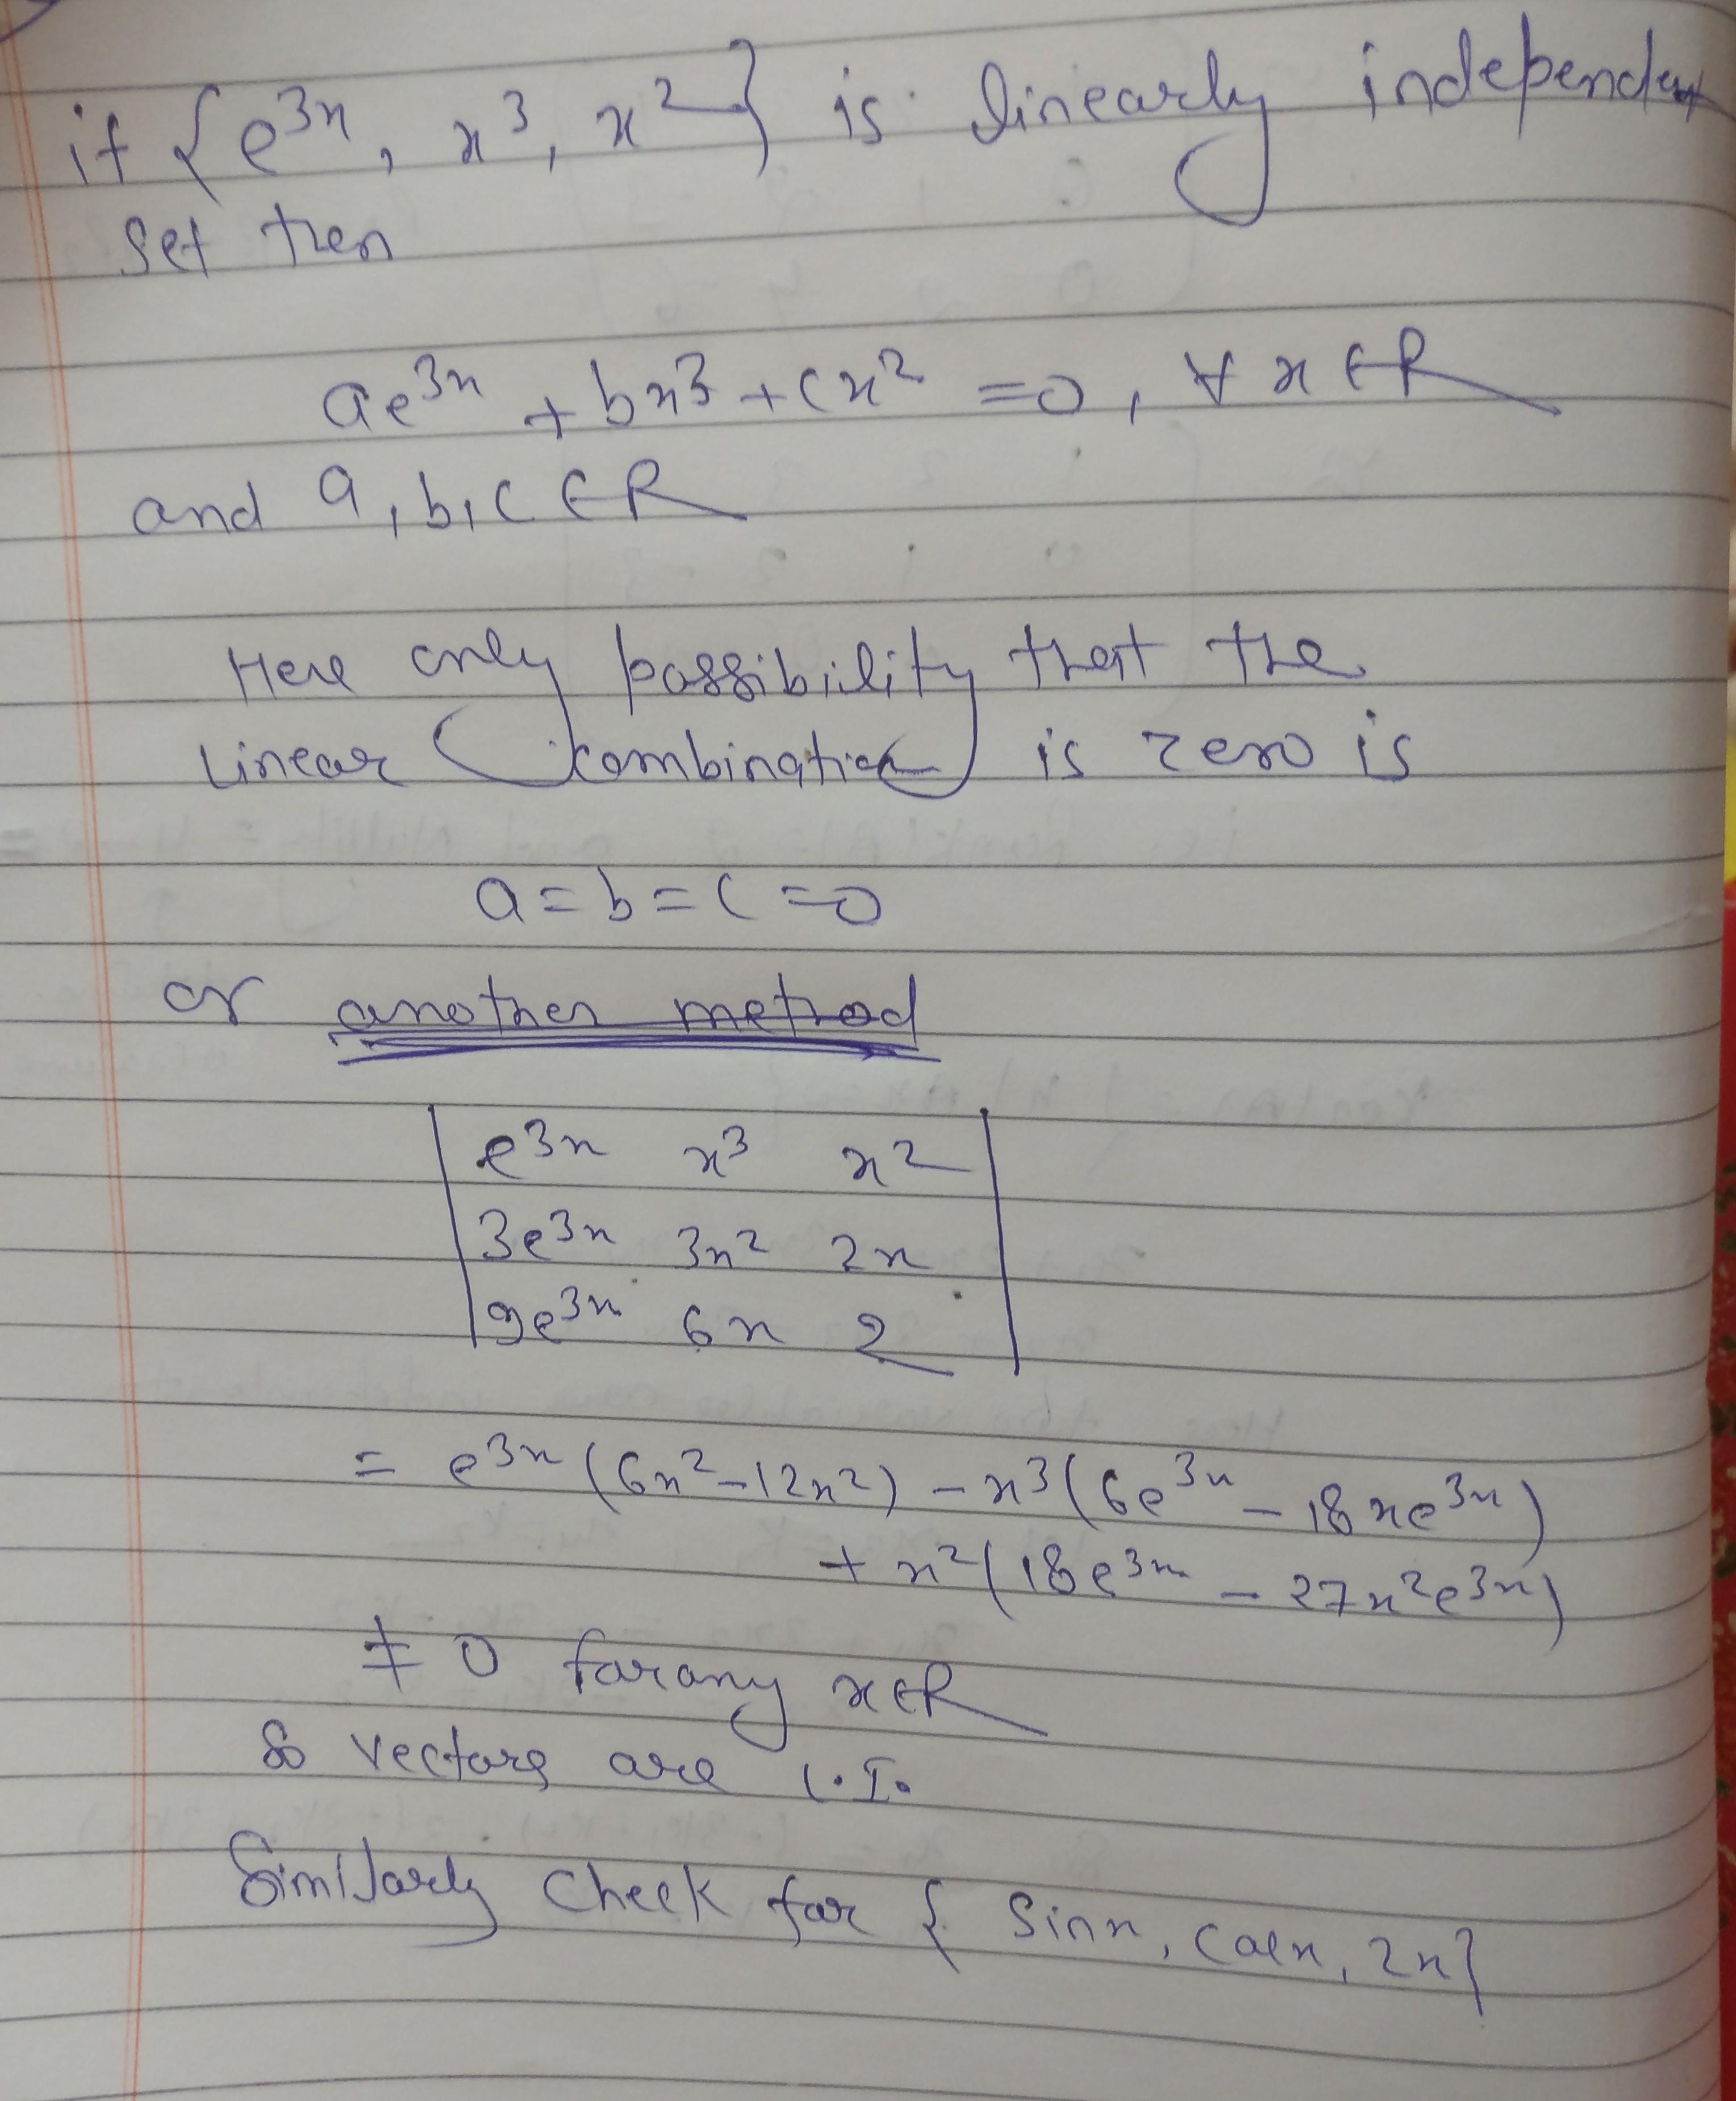 if {e^3x, x^3, x^2} is linearly independent
set then
ae^3x + bx^3 + cx^2 = 0, ∀ x ∈ R
and a, b, c ∈ R
Here only possibility that the
Linear combination is zero is
a = b = c = 0
or another method
| e^3x x^3 x^2 |
| 3e^3x 3x^2 2x |
| 9e^3x 6x 2 |
= e^3x (6x^2 - 12x^2) - x^3 (6e^3x - 18xe^3x)
+ x^2 (18e^3x - 27x^2e^3x)
≠ 0 for any x ∈ R
So vectors are L.I.
Similarly check for { Sinx, Cosx, 2x}